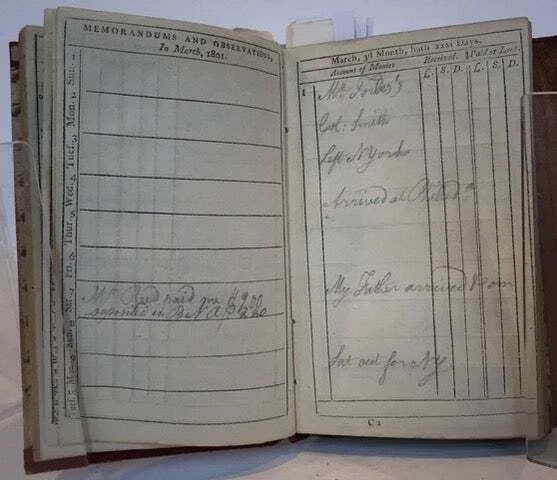 MEMORANDUMS AND OBSERVATIONS,
In March, 1801.
Sun. 1
Mon. 2
Tues. 3
Wed. 4
Thur. 5
Fri. 6
Sat. 7
Mr. Reed paid me $
in B N A $
Sun. 8
Mon. 9
Tues.
March, 3d Month, hath xxxi Days.
Account of Monies
Received.
Paid or Lent.
L. S. D. L. S. D.
1
Mrs. Forbes's
Col: Smith
Left N York
Arrived at Philada
My Father arrived
Set out for NY
C 2